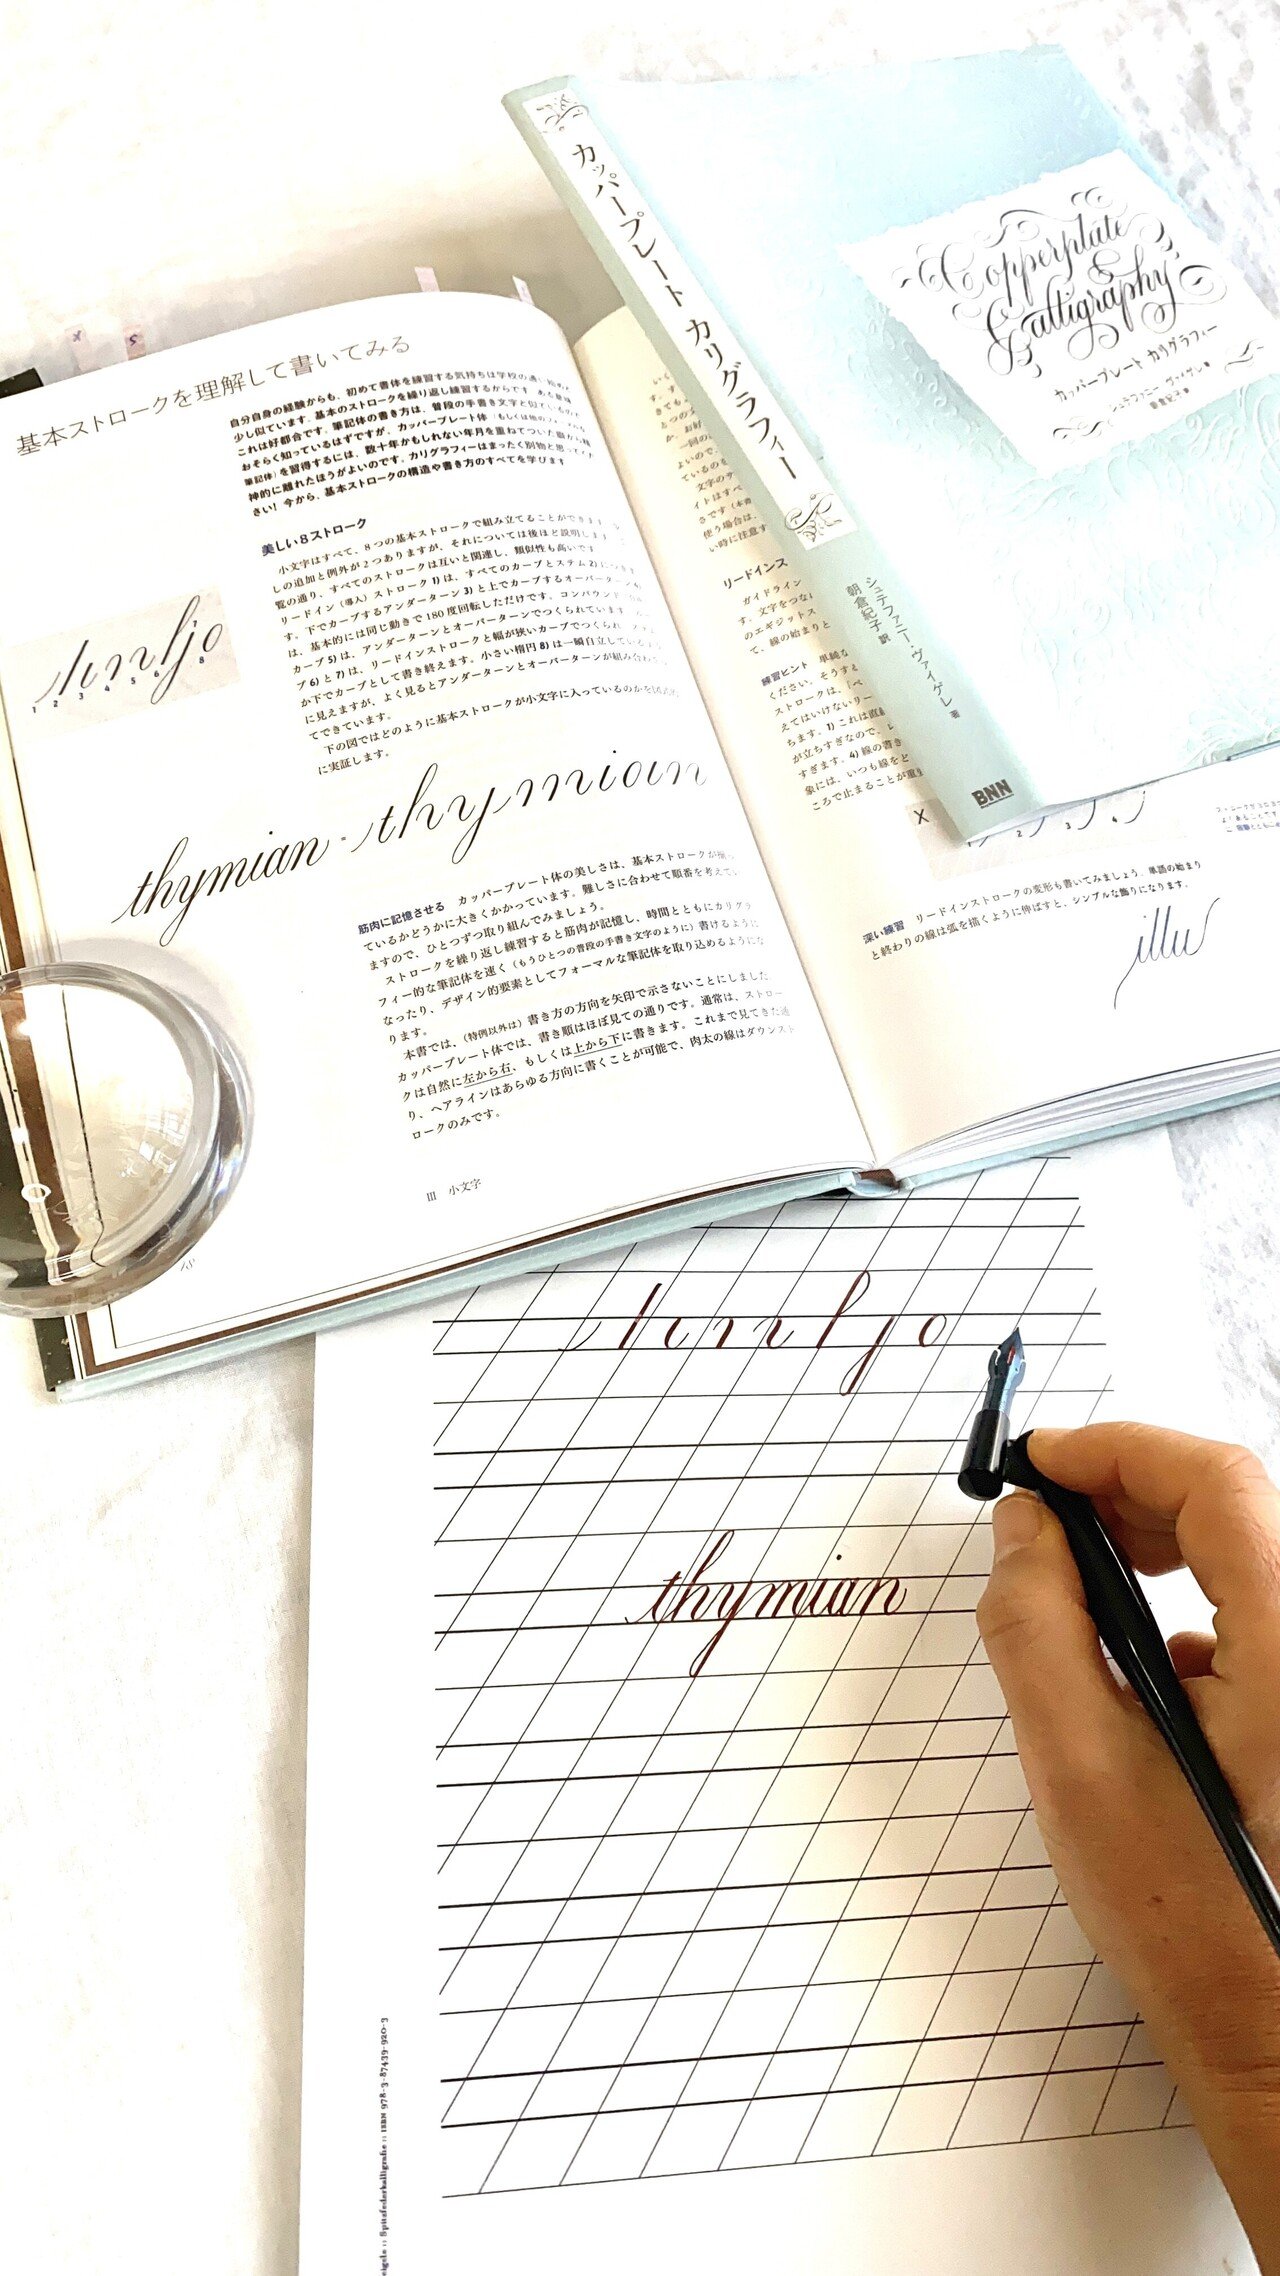 基本ストロークを理解して書いてみる
自分自身の経験からも、初めて書体を練習する気持ちは学校の
少し似ています。基本のストロークを繰り返し練習するからです。ある意味
これは好都合です。筆記体の書き方は、普段の手書き文字と似ている
おそらく知っているはずですが、カッパープレート体
筆記体）を習得するには、数十年かもしれない年月を重ねてついた
神的に離れたほうがよいのです。カリグラフィーはまったく別物と思って
さい！今から、基本ストロークの構造や書き方のすべてを学びます
美しい8ストローク
小文字はすべて、8つの基本ストロークで組み立てることができます
しの追加と例外が2つありますが、それについては後ほど説明します
覧の通り、すべてのストロークは互いと関連し、類似性も高いです
リードイン（導入）ストローク1）は、すべてのカーブとステム2）に
す。下でカーブするアンダーターン3）と上でカーブするオーバーターン4）
は、基本的には同じ動きで180度回転しただけです。コンパウンド
カーブ5）は、アンダーターンとオーバーターンでつくられています
プ6）と7）は、リードインストロークと幅が狭いカーブでつくられ
か下でカーブとして書き終えます。小さい楕円8）は一瞬自立している
に見えますが、よく見るとアンダーターンとオーバーターンが組み合わ
てできています。
下の図ではどのように基本ストロークが小文字に入っているのかを
に実証します。
1 2 3 4 5 6 8
thymian - thymian
筋肉に記憶させる カッパープレート体の美しさは、基本ストロークが揃っ
ているかどうかに大きくかかっています。難しさに合わせて順番を考えて
ますので、ひとつずつ取り組んでみましょう。
ストロークを繰り返し練習すると筋肉が記憶し、時間とともにカリグラ
フィー的な筆記体を速く（もうひとつの普段の手書き文字のように）書けるように
なったり、デザイン的要素としてフォーマルな筆記体を取り込めるようにな
ります。
本書では、（特例以外は）書き方の方向を矢印で示さないことにしました
カッパープレート体では、書き順はほぼ見ての通りです。通常は、ストロー
クは自然に左から右、もしくは上から下に書きます。これまで見てきた通
り、ヘアラインはあらゆる方向に書くことが可能で、肉太の線はダウンスト
ロークのみです。
III 小文字
リードインス
ガイドライン
す。文字をつな
のエギジットス
て、線の始まりと
練習ヒント 単純な
ください。そうすえ
ストロークは、「ペ
えてはいけないリー
ちます。1）これは直線
が立ちすぎなので、
すぎます。4）線の書き
象には、いつも線をど
ころで止まることが重
X
2 3 4
深い練習 リードインストロークの変形も書いてみましょう。単語の始まり
と終わりの線は弧を描くように伸ばすと、シンプルな飾りになります。
カッパープレート カリグラフィー
シュテファニー・ヴァイゲレ 著
朝倉紀子 訳
BNN
Copperplate
&
Calligraphy
カッパープレート カリグラフィー
シュテファニー・ヴァイゲレ 著
朝倉紀子 訳
thymian
eigele :: Spitzfederkalligrafie :: ISBN 978-3-87439-920-3